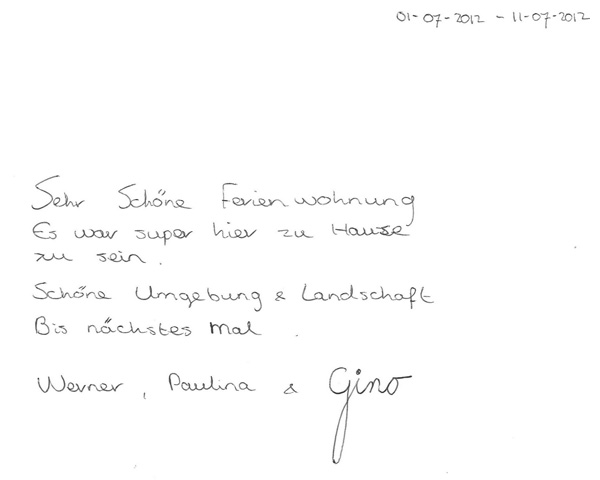 01-07-2012 - 11-07-2012
Sehr Schöne Ferienwohnung
Es war super hier zu Hause
zu sein.
Schöne Umgebung & Landschaft
Bis nächstes mal .
Werner, Paulina & Gino